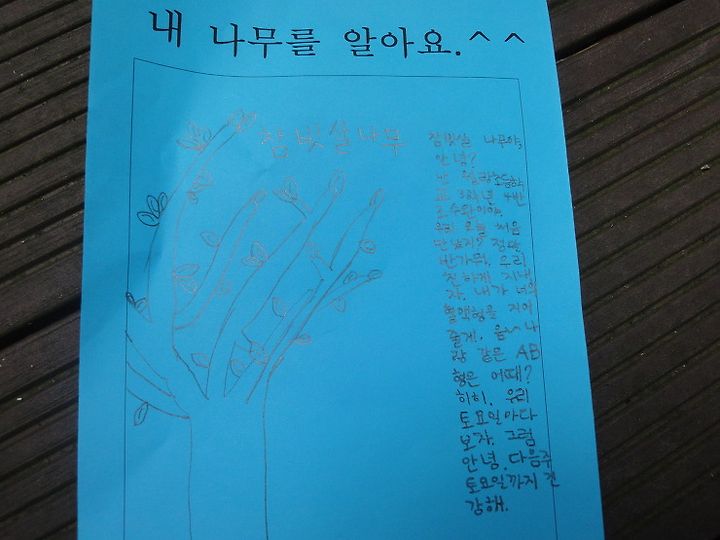 내 나무를 알아요.^^
참빗살나무
참빗살 나무야,
안녕?
난 월랑초등학
교 3학년 4반
조수완이야.
우리 오늘 처음
만났지? 정말
반가워. 우리
친하게 지내
자. 내가 너의
혈액형을 지어
줄게. 음~ 나
랑 같은 AB
형은 어때?
히히. 우리
토요일마다
보자. 그럼
안녕. 다음주
토요일까지 건
강해.